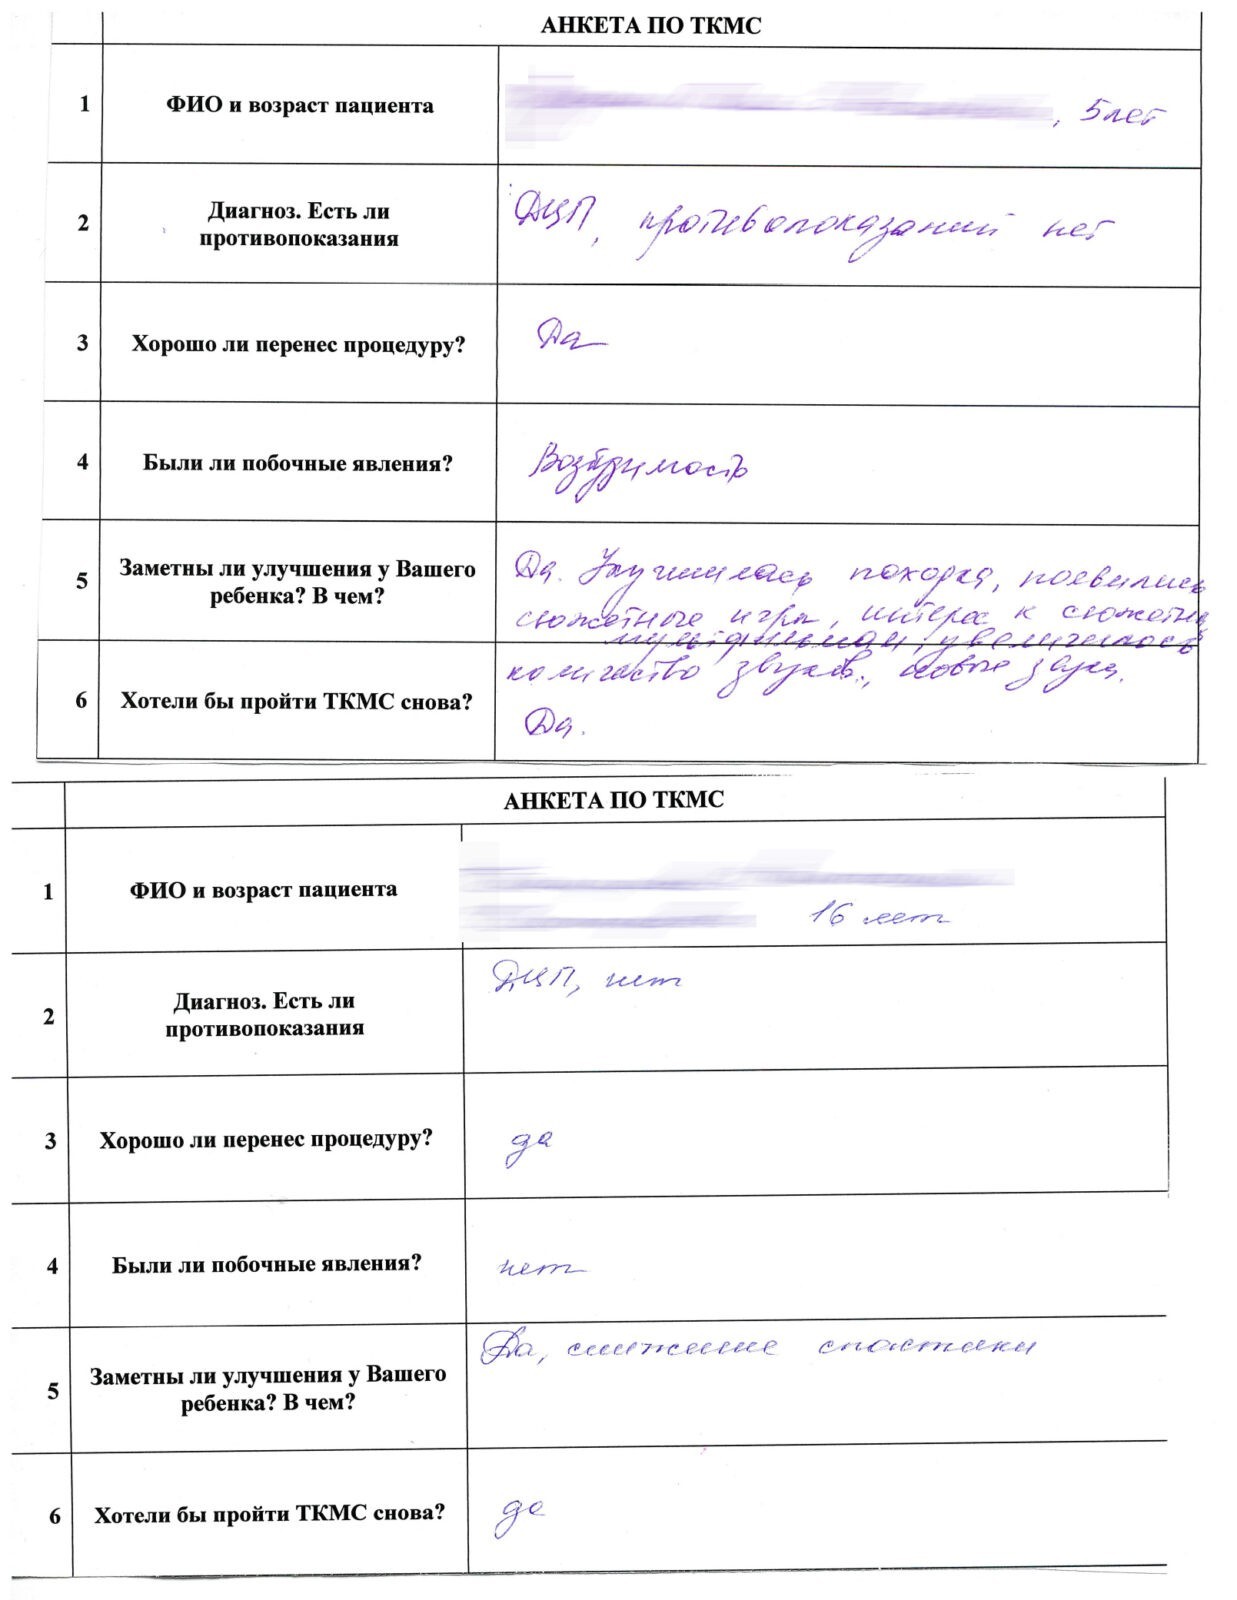 АНКЕТА ПО ТКМС
1
ФИО и возраст пациента
, 5 лет
2
Диагноз. Есть ли
противопоказания
ДЦП, противопоказаний нет
3
Хорошо ли перенес процедуру?
Да
4
Были ли побочные явления?
Возбудимость
5
Заметны ли улучшения у Вашего
ребенка? В чем?
Да. Улучшилась походка, появились
сюжетные игры, интерес к сюжетным
мультфильмам, увеличилось
количество звуков, новые звуки.
6
Хотели бы пройти ТКМС снова?
Да.
АНКЕТА ПО ТКМС
1
ФИО и возраст пациента
16 лет
2
Диагноз. Есть ли
противопоказания
ДЦП, нет
3
Хорошо ли перенес процедуру?
да
4
Были ли побочные явления?
нет
5
Заметны ли улучшения у Вашего
ребенка? В чем?
Да, снижение спастики
6
Хотели бы пройти ТКМС снова?
да